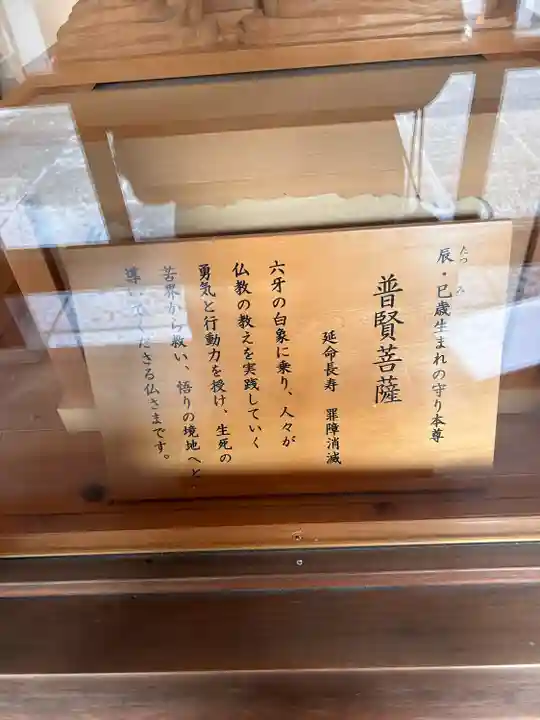 辰・巳歳生まれの守り本尊
たつ み
普賢菩薩
延命長寿 罪障消滅
六牙の白象に乗り、人々が
仏教の教えを実践していく
勇気と行動力を授け、生死の
苦界から救い、悟りの境地へと
導いてくださる仏さまです。